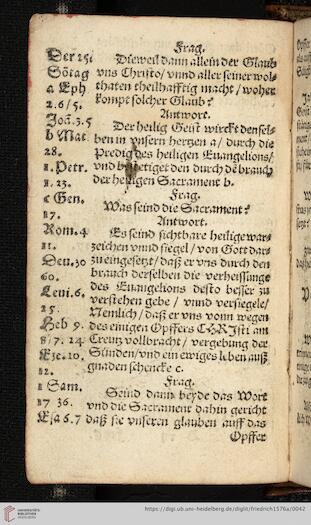 Frag.
Der 25.
Dieweil dann allein der Glaub
Sōtag
vns Christo / vnnd aller seiner wol-
a Eph
thaten theilhafftig macht / woher
2.6/5.
kompt solcher Glaub?
Joā.3.5
Antwort.
Der heilig Geist wirckt densel-
b Mat.
ben in vnsern hertzen a / durch die
28.
Predig des heiligen Euangelions /
1. Petr.
vnd bestetiget den durch dē brauch
1. 23.
der heiligen Sacrament b.
c Gen.
Frag.
17.
Was seind die Sacrament?
Antwort.
Rom.4
Es seind sichtbare heilige war-
11.
zeichen vnnd siegel / von Gott dar-
Deu.30
zu eingesetzt / daß er vns durch den
60.
brauch derselben die verheissunge
Leui.6.
des Euangelions desto besser zu
verstehen gebe / vnnd versiegele /
25.
Nemlich / daß er vns vonn wegen
Heb 9.
des einigen Opffers CHRJsti am
8/7. 24
Creutz vollbracht / vergebung der
Eze.20.
Sünden / vnd ein ewiges leben auß
12.
gnaden schencke c.
1 Sam.
Frag.
Seind dann beyde das Wort
17 36.
vnd die Sacrament dahin gericht
Esa 6.7
daß sie vnseren glauben auff das
Opffer
UNIVERSITÄTS-
BIBLIOTHEK
HEIDELBERG
https://digi.ub.uni-heidelberg.de/diglit/friedrich1576a/0042